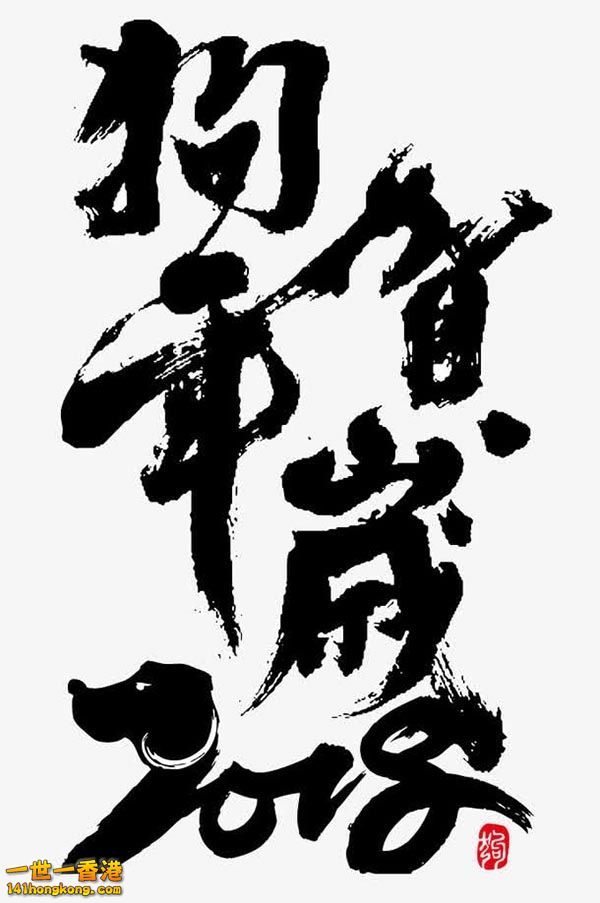 狗年
賀歲
2018
狗
一世一香港
141hongkong.com